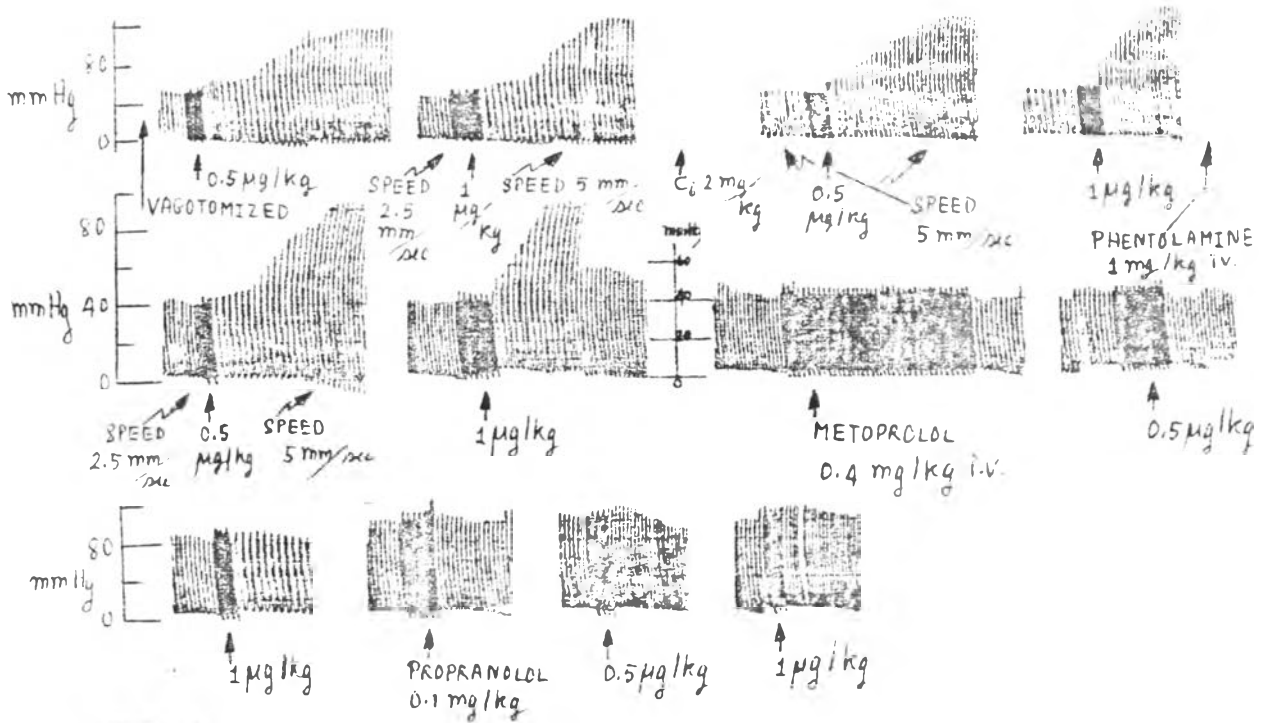 80
mm Hg
0
0.5 µg/kg
VAGOTOMIZED
SPEED
2.5
mm/sec
1
µg/kg
SPEED 5 mm/sec
Ci 2 mg/kg
0.5
µg/kg
SPEED
5 mm/sec
1 µg/kg
PHENTOLAMINE
1 mg/kg i.v.
80
mm Hg
40
0
SPEED
2.5 mm/sec
0.5
µg/kg
SPEED
5 mm/sec
1 µg/kg
40
20
0
METOPROLOL
0.4 mg/kg i.v.
0.5 µg/kg
80
mm Hg
0
1 µg/kg
PROPRANOLOL
0.1 mg/kg
0.5 µg/kg
1 µg/kg